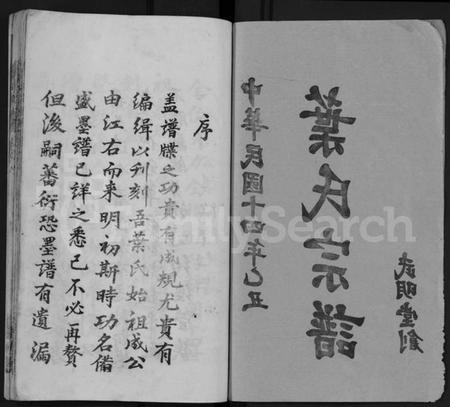 中華民國十四年乙丑
葉氏宗譜
武明堂創
序
盖譜牒之功貴有成規尤貴有
編緝以刋刻吾葉氏始祖成公
由江右而来明初斯時功名偹
盛墨譜已詳之悉已不必再贅
但後嗣蕃衍恐墨譜有遺漏
FamilySearch